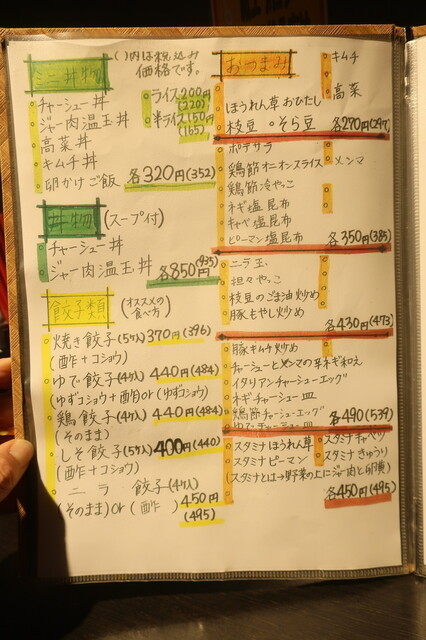 ( )内は税込み
価格です。
ミニ丼物
チャーシュー丼
ジャー肉温玉丼
高菜丼
キムチ丼
卵かけご飯 各320円(352)
ライス200円
(220)
半ライス150円
(165)
丼物 (スープ付)
チャーシュー丼
ジャー肉温玉丼 各850円(935)
餃子類 (オススメの
食べ方)
焼き餃子(5ヶ入) 370円(396)
(酢+コショウ)
ゆで餃子(4ヶ入) 440円(484)
(ゆずコショウ+酢)or(ゆずコショウ)
鶏餃子(4ヶ入) 440円(484)
(そのまま)
しそ餃子(5ヶ入) 400円(440)
(酢+コショウ)
ニラ餃子(4ヶ入)
(そのまま)or(酢) 450円
(495)
おつまみ
キムチ
高菜
ほうれん草おひたし
枝豆 そら豆 各270円(297)
ポテサラ
鶏節オニオンスライス メンマ
鶏節冷やっこ
ネギ塩昆布
キャベ塩昆布
ピーマン塩昆布 各350円(385)
ニラ玉
担々やっこ
枝豆のごま油炒め
豚もやし炒め
各430円(473)
豚キムチ炒め
チャーシューとメンマの辛ネギ和え
イタリアンチャーシューエッグ
ネギチャーシュー皿
鶏節チャーシューエッグ 各490円(539)
ゆでチャーシュー皿
スタミナほうれん草 スタミナキャベツ
スタミナピーマン スタミナきゅうり
(スタミナとは→野菜の上にジャー肉と卵黄)
各450円(495)